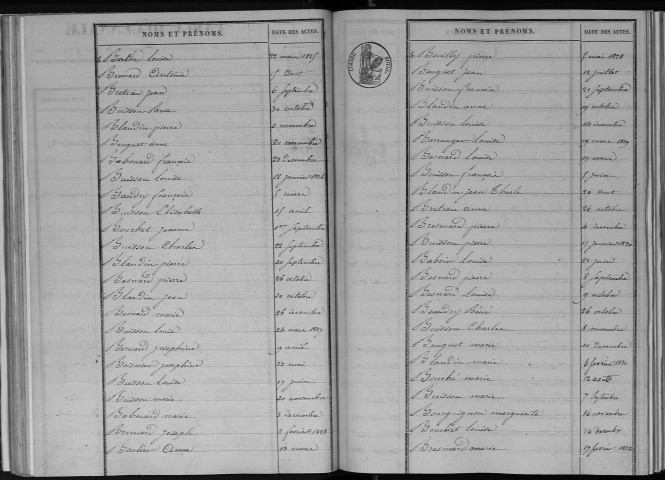 NOMS ET PRÉNOMS. DATE DES ACTES.
Berthe Louise 22 mars 1825
15 août
Breteau jean 6 Septembre
Buisson Rose 30 octobre
Blandin pierre 2 novembre
Bouquet anne 20 novembre
Babouard françois 29 decembre
Buisson Louise 12 janvier 1826
Baudry françoise 5 mars
Buisson Elisabeth 15 avril
Bouchet jeanne 1er Septembre
Buisson Charles 22 Septembre
Blandin pierre 30 septembre
Besnard pierre 26 octobre
Blandin jean 30 octobre
Besnard marie 26 decembre
Buisson Louise 24 mars 1827
Besnard josephine 9 avril
josephine 22 mai
Buisson Louise 17 juin
Buisson marie 20 novembre
Babouard marie 3 decembre
Besnard joseph 2 février 1828
10 mars
NOMS ET PRÉNOMS. DATE DES ACTES.
pierre 5 mai 1828
Bouquet jean 12 juillet
Buisson françois 21 Septembre
Blandin anne 19 octobre
Buisson Louise 14 decembre
Louise 19 mars 1829
Besnard Louise 19 mars
Buisson françois 5 juin
Blandin jean 20 aout
Breteau anne 26 octobre
Besnard pierre 4 decembre
Buisson pierre 17 janvier 1830
Louise 22 juin
Besnard pierre 8 Septembre
Besnard Louise 9 octobre
Beaudry 26 octobre
Buisson Charles 8 novembre
Bouquet marie 20 decembre
Blandin marie 6 février 1831
Bouché marie 12 août
Buisson marie 7 Septembre
Bourguignon marguerite 16 novembre
Bouchet Louise 14 decembre
Besnard marie 17 février 1832